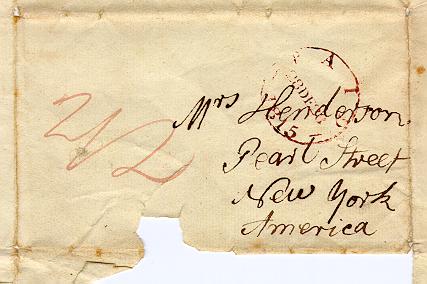 2/2
Mrs Henderson
Pearl Street
New York
America